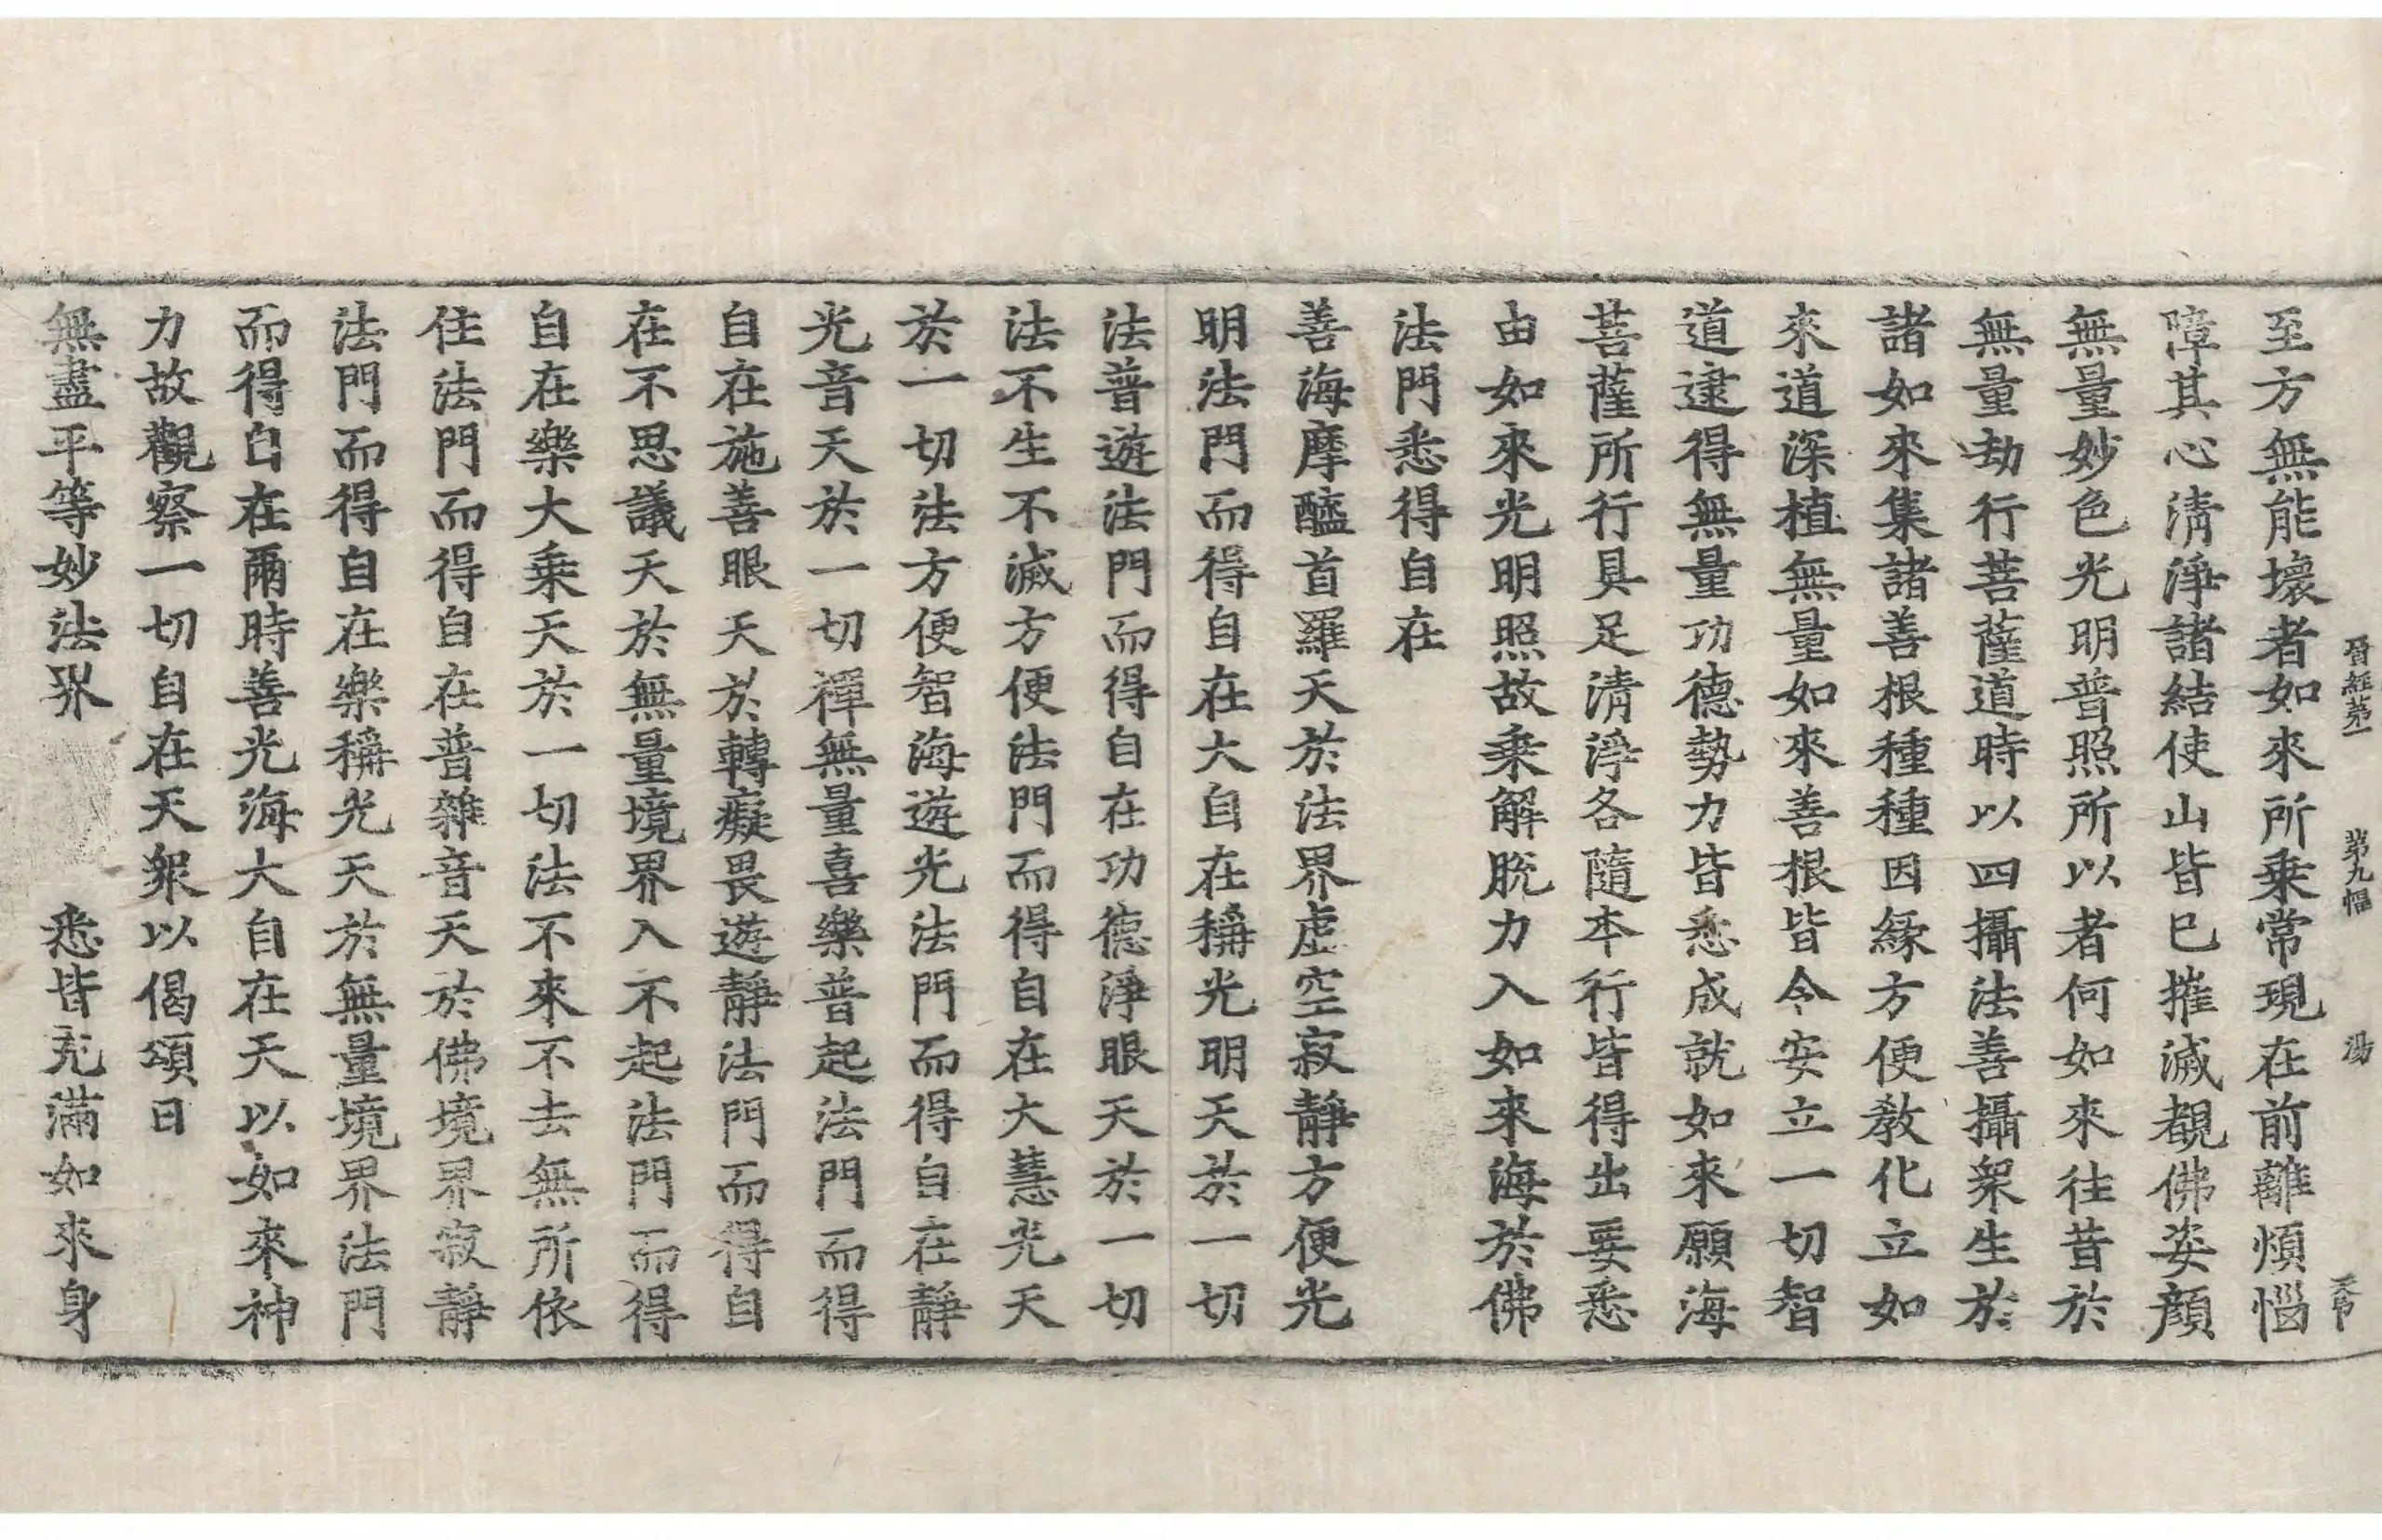 晉經第一 第九幅 湯
至方無能壞者如來所乘常現在前離煩惱
障其心清淨諸結使山皆已摧滅覩佛姿顏
無量妙色光明普照所以者何如來往昔於
無量劫行菩薩道時以四攝法善攝衆生於
諸如來集諸善根種種因緣方便教化立如
來道深植無量如來善根皆令安立一切智
道逮得無量功德勢力皆悉成就如來願海
菩薩所行具足清淨各隨本行皆得出要悉
由如來光明照故乘解脫力入如來海於佛
法門悉得自在
善海摩醯首羅天於法界虛空寂靜方便光
明法門而得自在大自在稱光明天於一切
法普遊法門而得自在功德淨眼天於一切
法不生不滅方便法門而得自在大慧光天
於一切法方便智海遊光法門而得自在靜
光音天於一切禪無量喜樂普起法門而得
自在施善眼天於轉癡畏遊靜法門而得自
在不思議天於無量境界入不起法門而得
自在樂大乘天於一切法不來不去無所依
住法門而得自在普雜音天於佛境界寂靜
法門而得自在樂稱光天於無量境界法門
而得自在爾時善光海大自在天以如來神
力故觀察一切自在天衆以偈頌曰
無盡平等妙法界 悉皆充滿如來身